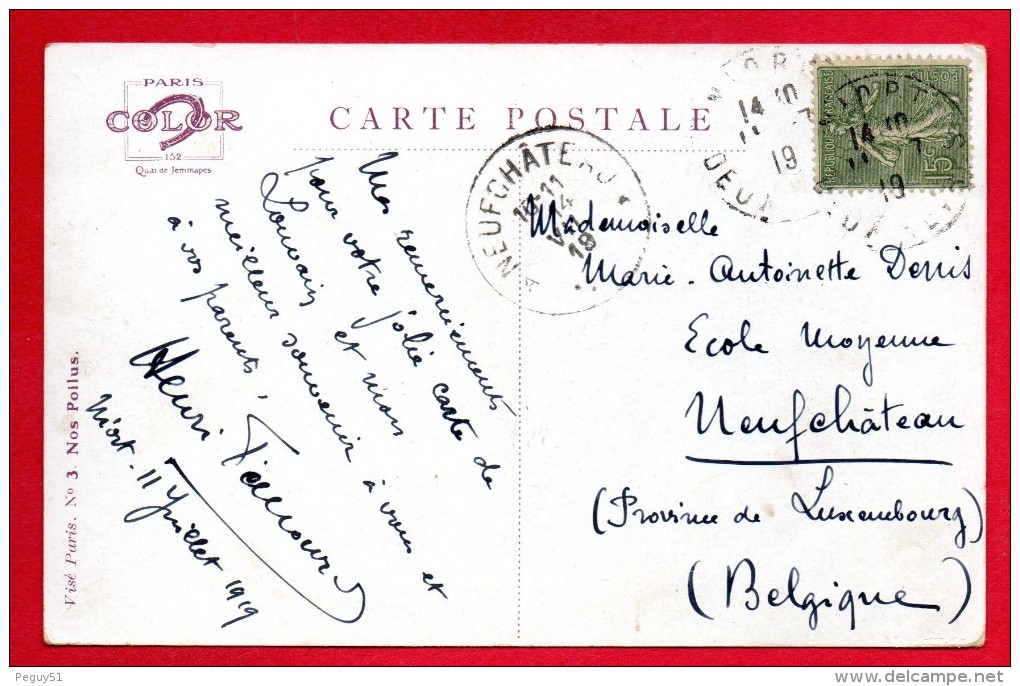 PARIS
COLOR
152
Quai de Jemmapes
CARTE POSTALE
NEUFCHÂTEAU
14 10
11 7
19
14 10
11 7
19
RÉPUBLIQUE FRANÇAISE
POSTES
15c
Mes remerciements
pour votre jolie carte de
Louvain et mon
meilleur souvenir à vous et
à vos parents,
Henri
Niort. 11 Juillet 1919
Mademoiselle
Marie-Antoinette Denis
Ecole Moyenne
Neufchâteau
(Province de Luxembourg)
(Belgique)
Visé Paris. No 3. Nos Poilus.
Peguy51
delcampe.net